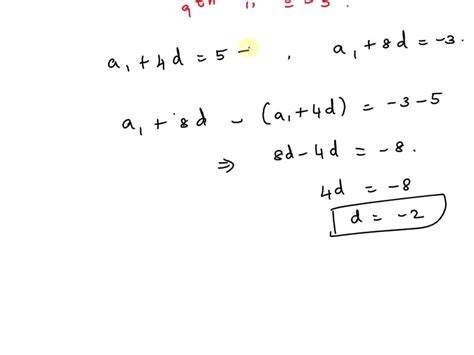 9th " = -3.
a₁ + 4d = 5 – , a₁ + 8d = -3.
a₁ + 8d – (a₁ + 4d) = -3 - 5
⇒ 8d - 4d = -8.
4d = -8
d = -2